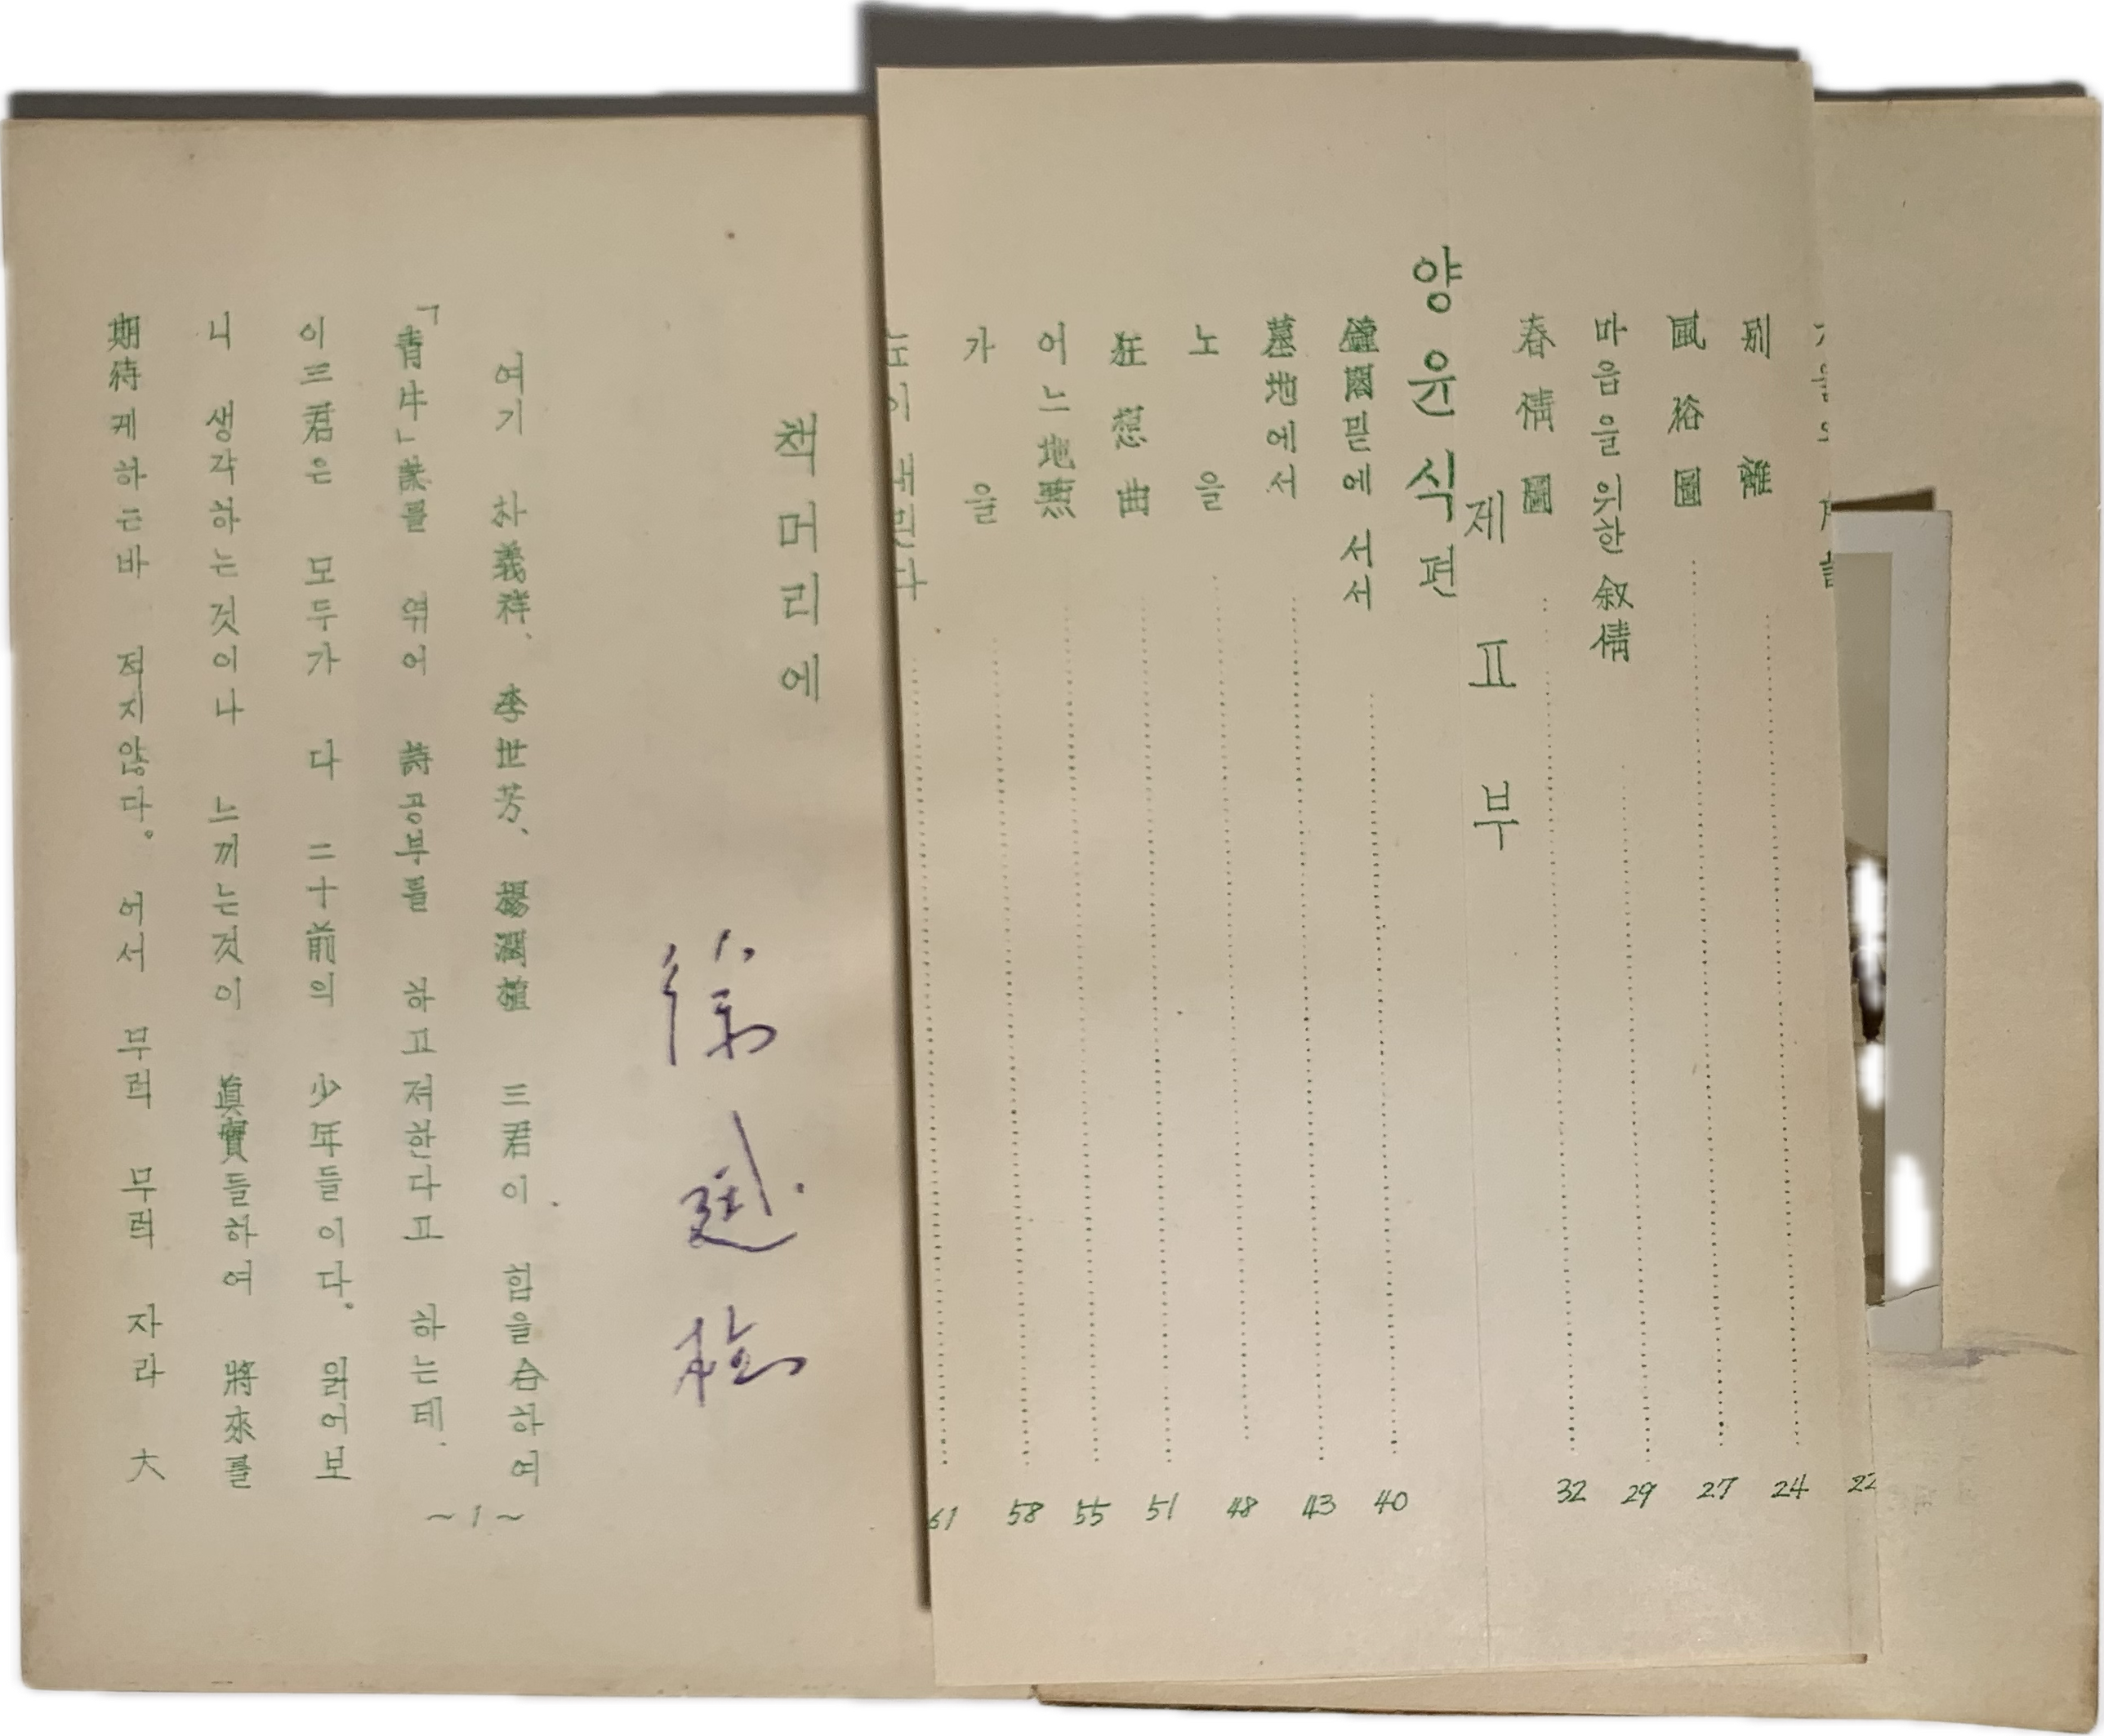 22
別離 24
風俗圖 27
마음을 위한 叙情 29
春情圖 32
제 Ⅱ 부
양윤식편
鐘閣밑에 서서 40
墓地에서 43
노을 48
狂想曲 51
어느 地點 55
가을 58
눈이 내린다 61
책머리에
徐廷柱
여기 朴義祥、李世芳、楊潤植 三君이 힘을 合하여
「青牛」誌를 엮어 詩공부를 하고저한다고 하는데、
이三君은 모두가 다 二十前의 少年들이다。 읽어보
니 생각하는것이나 느끼는것이 眞實들하여 將來를
期待케하는바 적지않다。 어서 무럭 무럭 자라 大
~1~